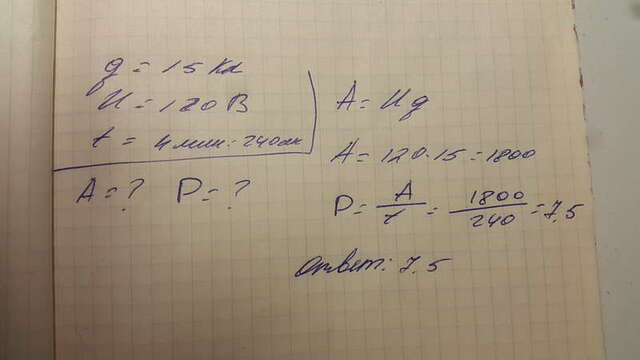 q = 15 Кл
U = 120 В
t = 4 мин = 240 сек
A = ? P = ?
A = Uq
A = 120 · 15 = 1800
P = A/t = 1800/240 = 7,5
Ответ: 7.5